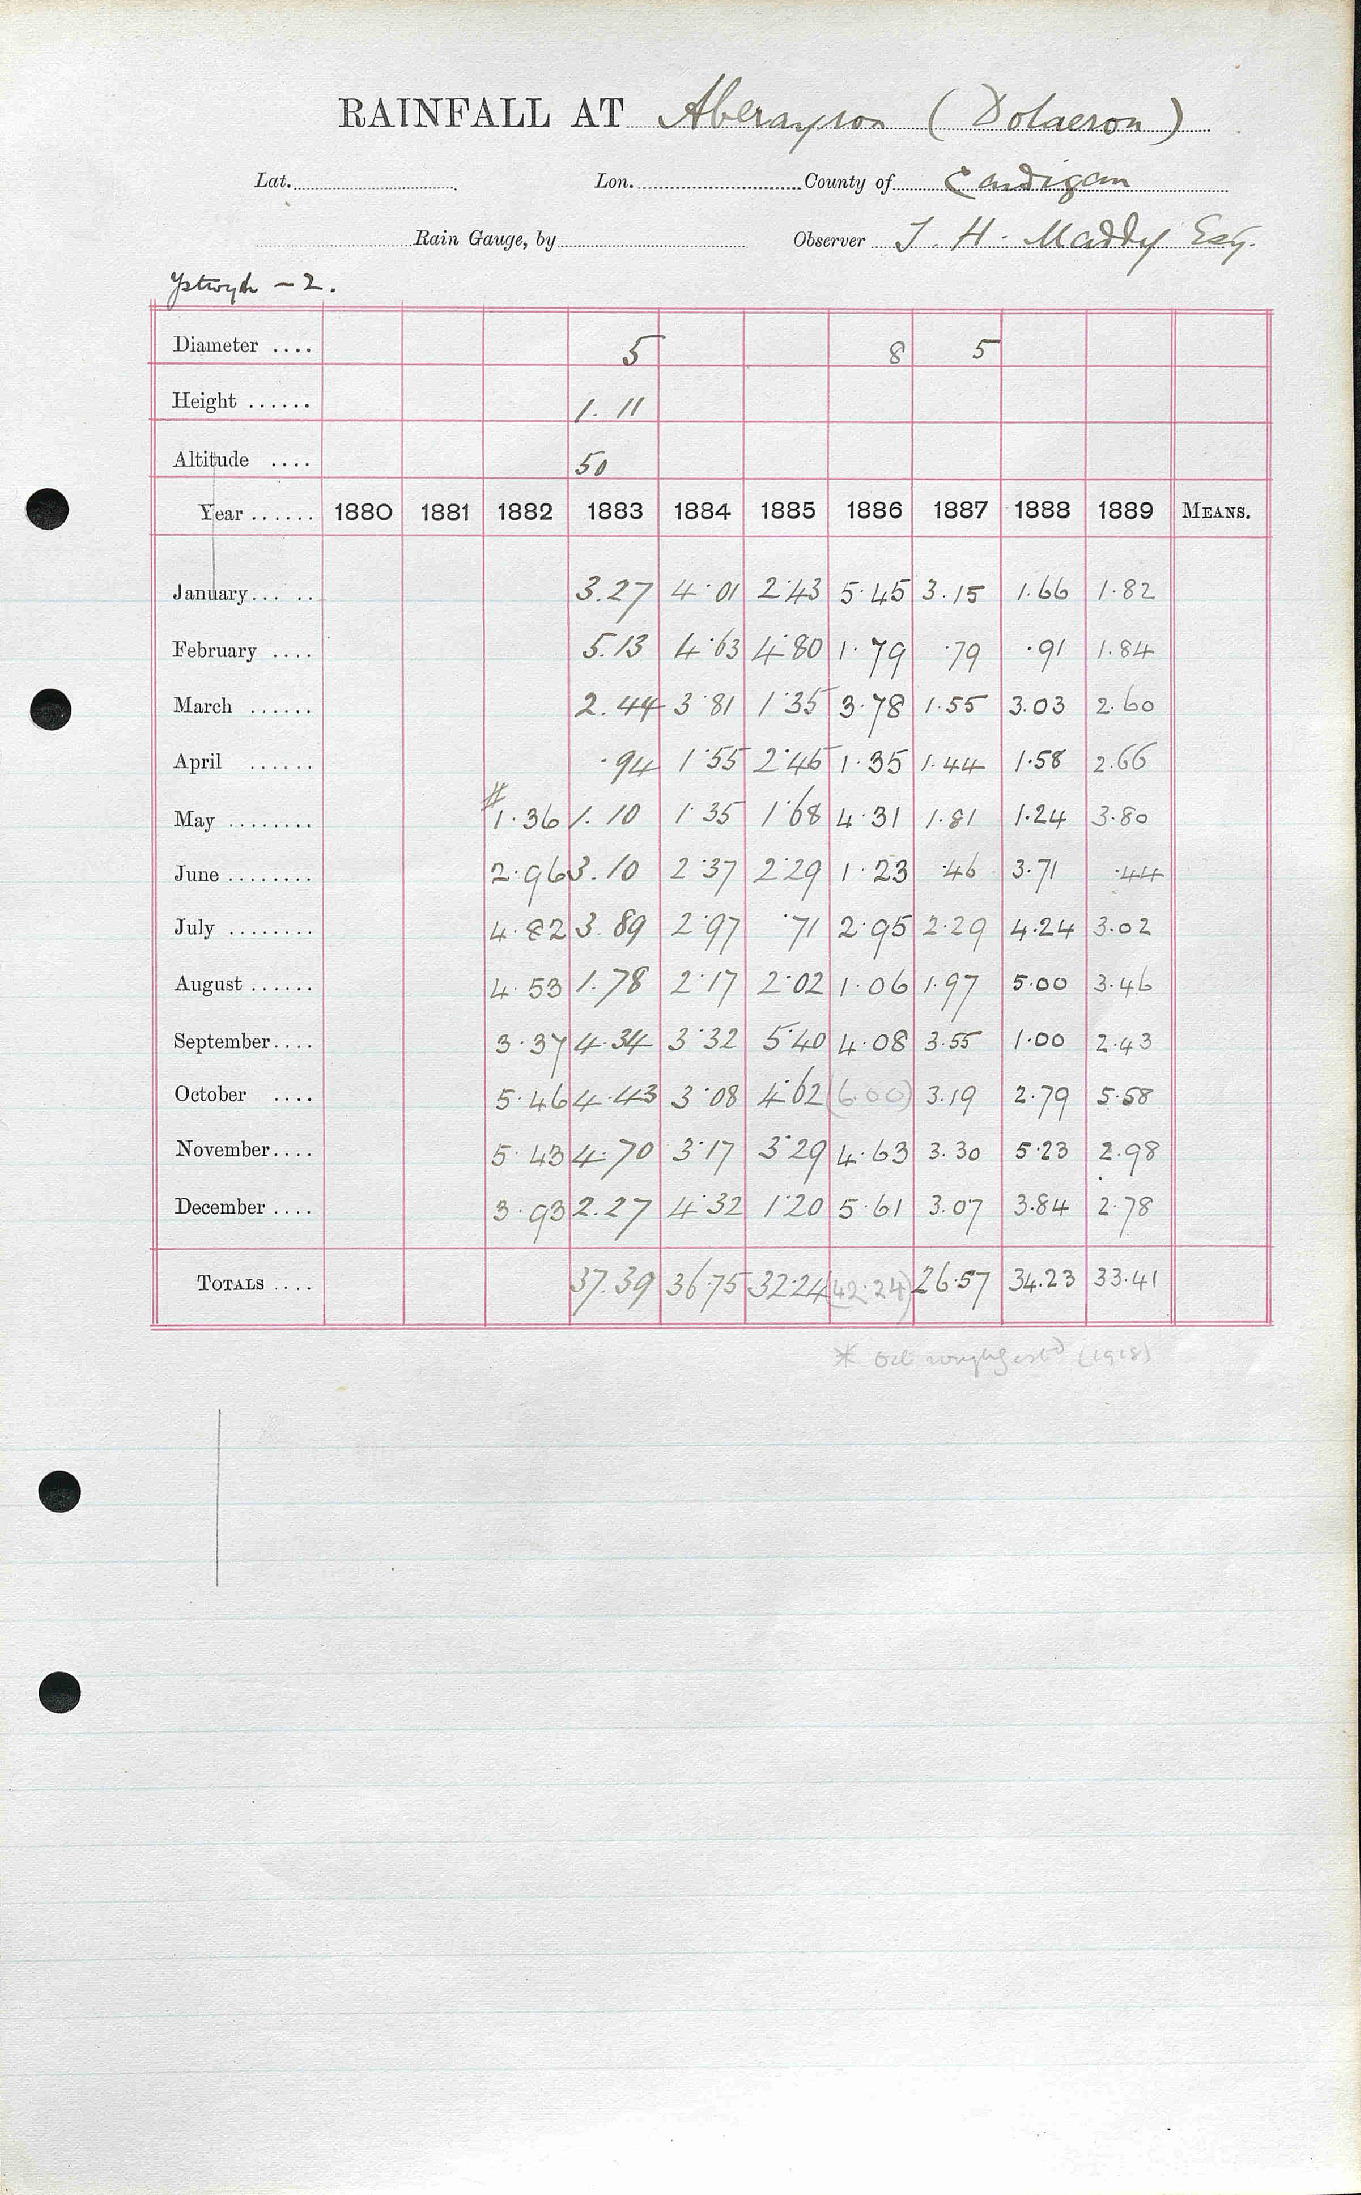 RAINFALL AT Aberayron (Dolaeron)
Lat. Lon. County of Cardigan
Rain Gauge, by Observer J. H. Maddy Esq.
Ystwyth - 2.
Diameter .... 5 8 5
Height ...... 1. 11
Altitude .... 50
Year ...... 1880 1881 1882 1883 1884 1885 1886 1887 1888 1889 MEANS.
January... .. 3.27 4.01 2.43 5.45 3.15 1.66 1.82
February .... 5.13 4.63 4.80 1.79 .79 .91 1.84
March ...... 2.44 3.81 1.35 3.78 1.55 3.03 2.60
April ...... .94 1.55 2.45 1.35 1.44 1.58 2.66
#
May ........ 1.36 1.10 1.35 1.68 4.31 1.81 1.24 3.80
June ........ 2.96 3.10 2.37 2.29 1.23 .46 3.71 .44
July ........ 4.82 3.89 2.97 .71 2.95 2.29 4.24 3.02
August ...... 4.53 1.78 2.17 2.02 1.06 1.97 5.00 3.46
September.... 3.37 4.34 3.32 5.40 4.08 3.55 1.00 2.43
October .... 5.46 4.43 3.08 4.62 (6.00) 3.19 2.79 5.58
November.... 5.43 4.70 3.17 3.29 4.63 3.30 5.23 2.98
December .... 3.93 2.27 4.32 1.20 5.61 3.07 3.84 2.78
TOTALS .... 37.39 36.75 32.24 (42.24) 26.57 34.23 33.41
* Oct roughly estd (1918)